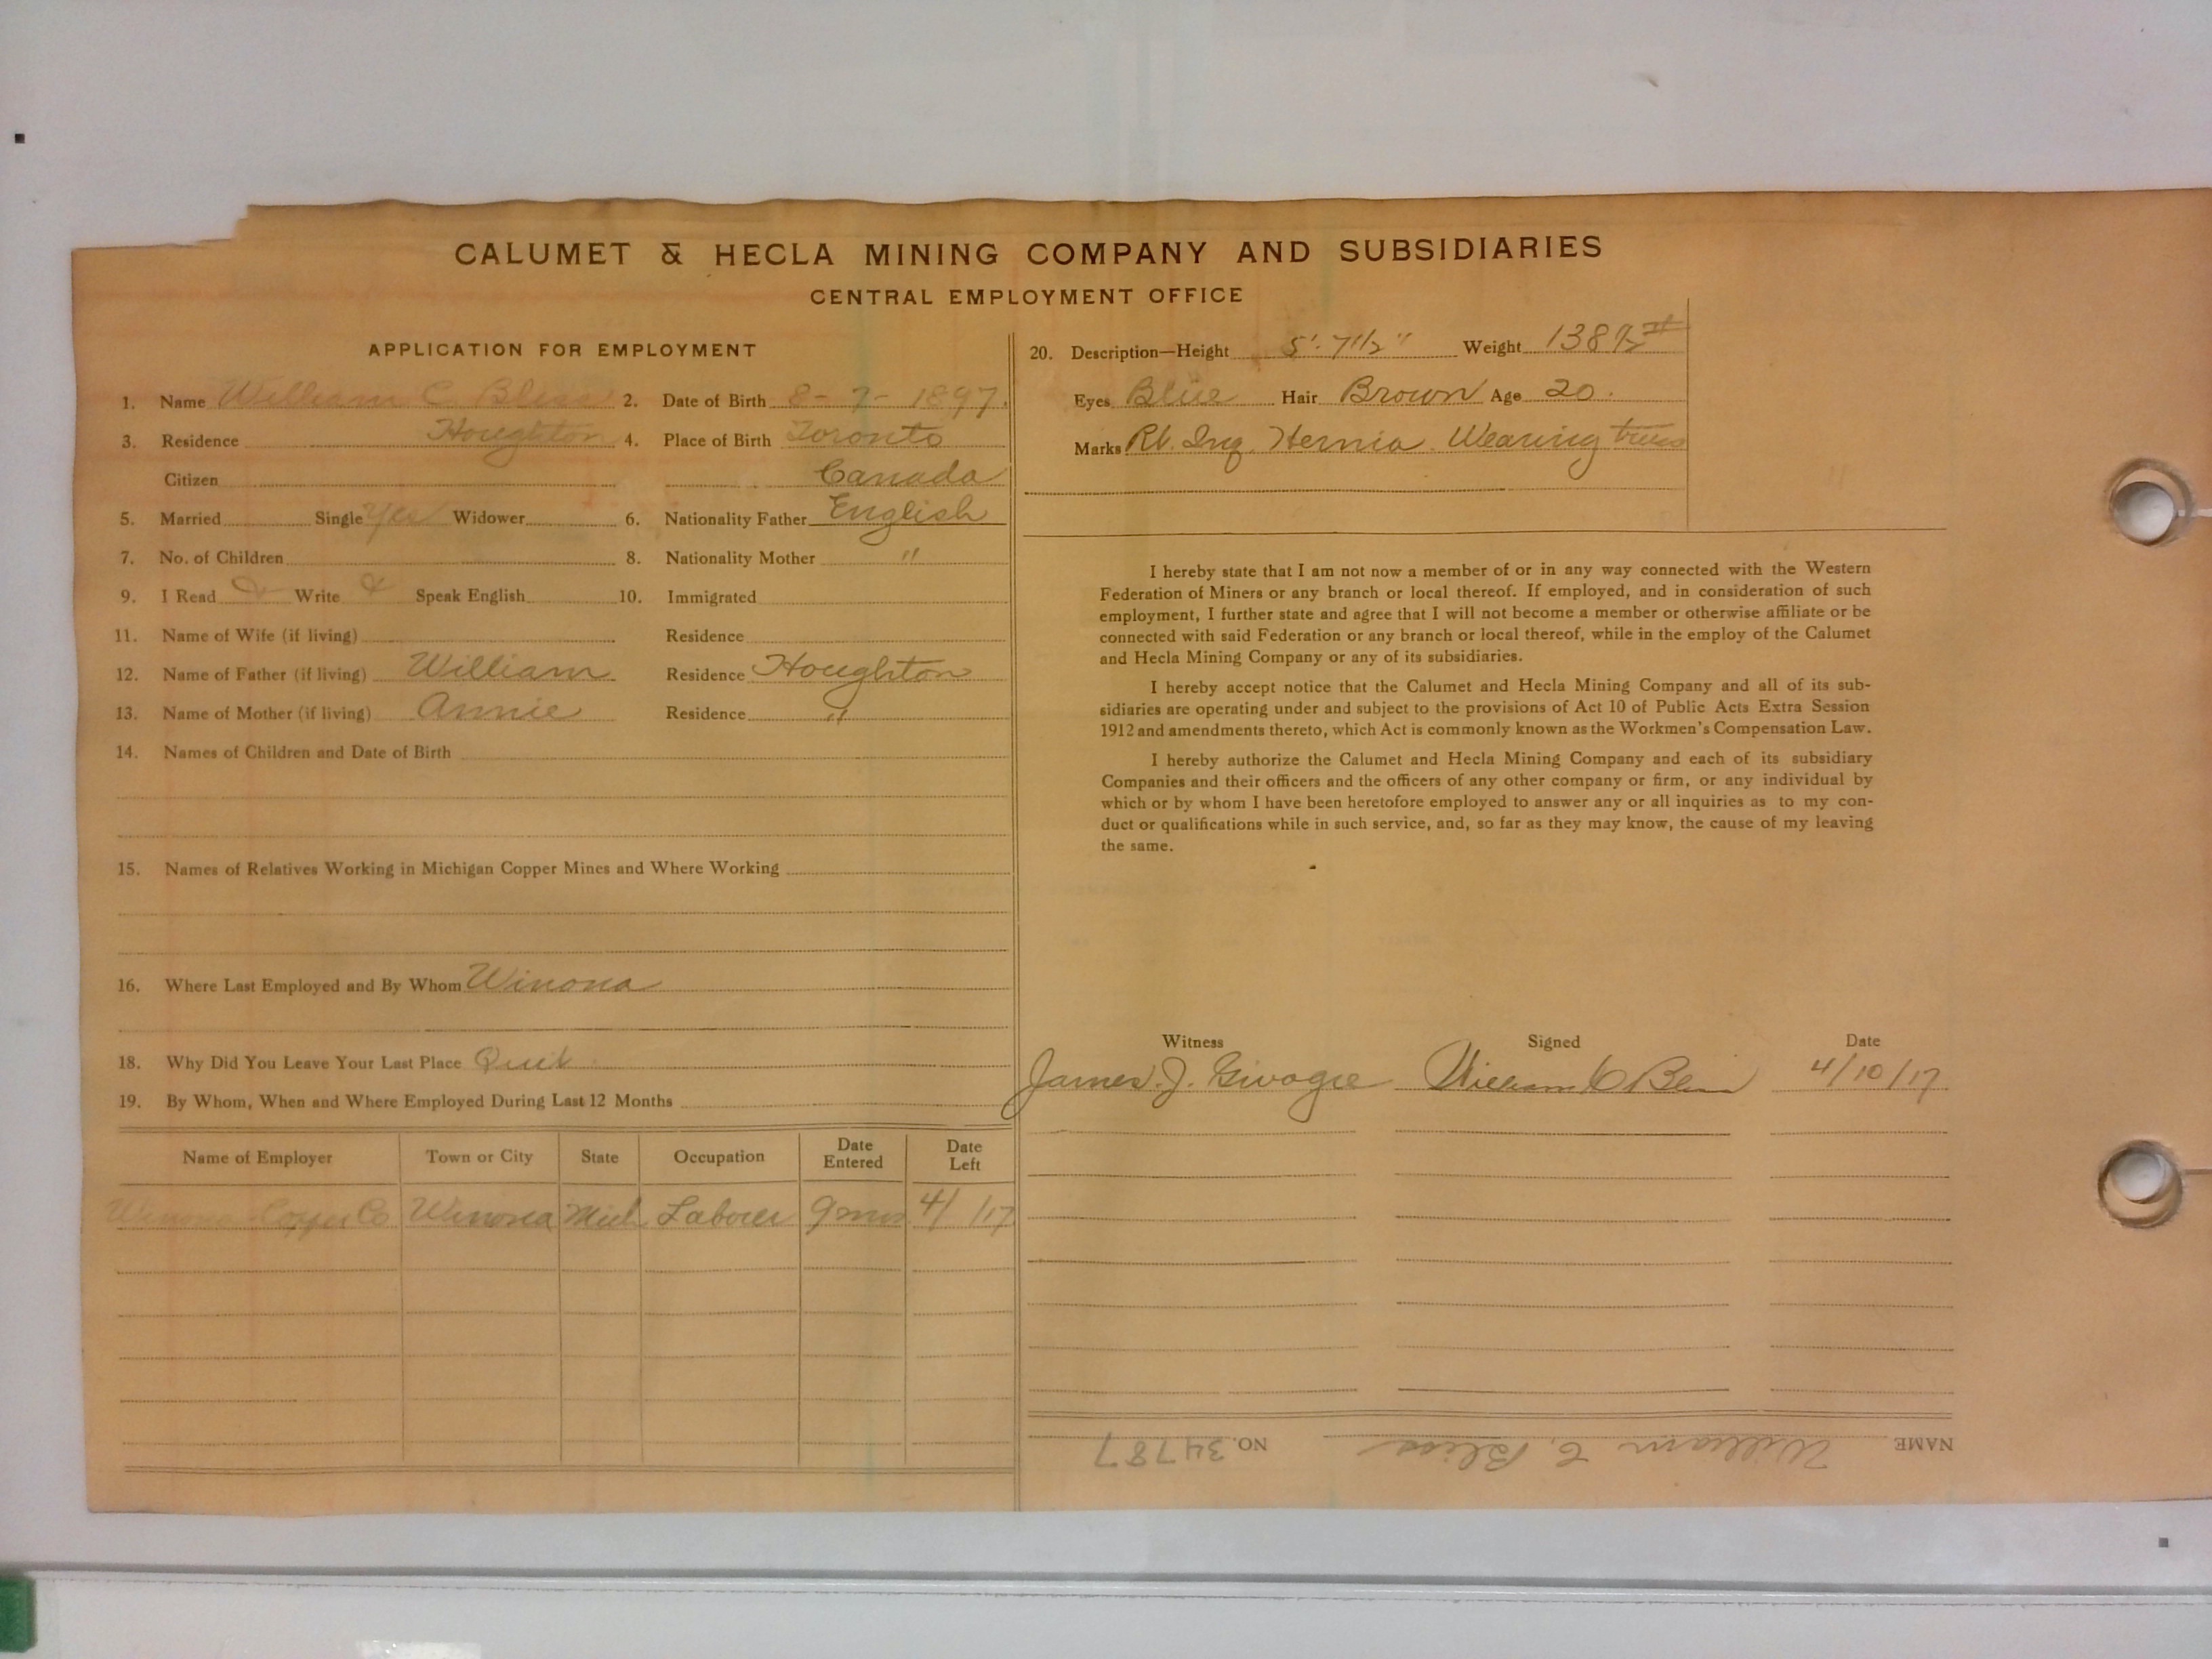 CALUMET & HECLA MINING COMPANY AND SUBSIDIARIES
CENTRAL EMPLOYMENT OFFICE
APPLICATION FOR EMPLOYMENT
1. Name William C. Bliss 2. Date of Birth 8-7-1897.
3. Residence Houghton 4. Place of Birth Toronto
Citizen Canada
5. Married Single Yes Widower 6. Nationality Father English
7. No. of Children 8. Nationality Mother "
9. I Read Write Speak English 10. Immigrated
11. Name of Wife (if living) Residence
12. Name of Father (if living) William Residence Houghton
13. Name of Mother (if living) Annie Residence "
14. Names of Children and Date of Birth
15. Names of Relatives Working in Michigan Copper Mines and Where Working
16. Where Last Employed and By Whom Winona
18. Why Did You Leave Your Last Place Quit.
19. By Whom, When and Where Employed During Last 12 Months
Name of Employer Town or City State Occupation Date Entered Date Left
Winona Copper Co Winona Mich Laborer 9 mos. 4/ /17
20. Description—Height 5'. 7 1/2" Weight 138 1/2 #
Eyes Blue Hair Brown Age 20.
Marks Rt. Ing. Hernia. Wearing truss
I hereby state that I am not now a member of or in any way connected with the Western
Federation of Miners or any branch or local thereof. If employed, and in consideration of such
employment, I further state and agree that I will not become a member or otherwise affiliate or be
connected with said Federation or any branch or local thereof, while in the employ of the Calumet
and Hecla Mining Company or any of its subsidiaries.
I hereby accept notice that the Calumet and Hecla Mining Company and all of its sub-
sidiaries are operating under and subject to the provisions of Act 10 of Public Acts Extra Session
1912 and amendments thereto, which Act is commonly known as the Workmen's Compensation Law.
I hereby authorize the Calumet and Hecla Mining Company and each of its subsidiary
Companies and their officers and the officers of any other company or firm, or any individual by
which or by whom I have been heretofore employed to answer any or all inquiries as to my con-
duct or qualifications while in such service, and, so far as they may know, the cause of my leaving
the same.
Witness Signed Date
James. J. William C Bliss 4/10/17.
NAME William C. Bliss NO. 34787